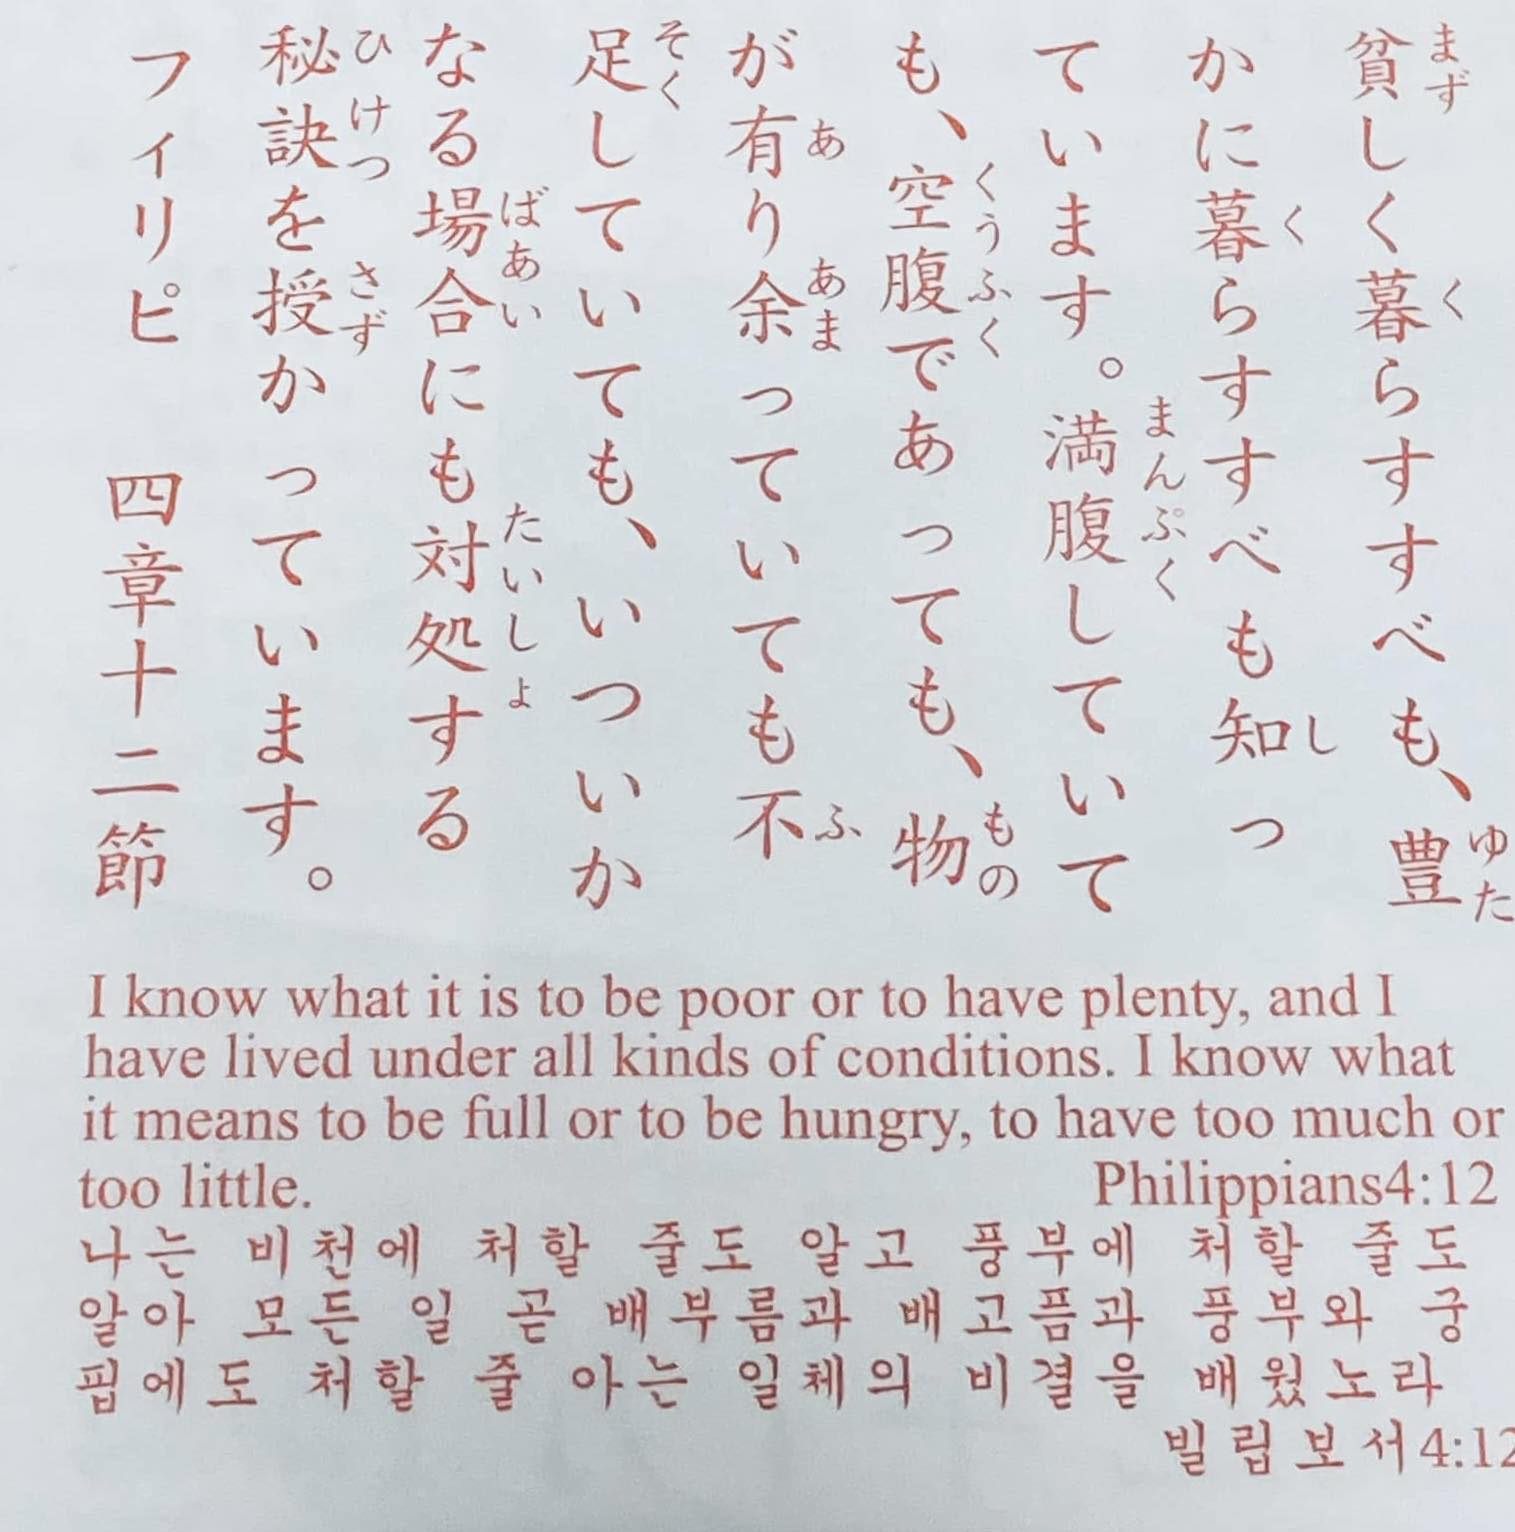 貧しく暮らすすべも、豊
かに暮らすすべも知っ
ています。満腹していて
も、空腹であっても、物
が有り余っていても不
足していても、いついか
なる場合にも対処する
秘訣を授かっています。
フィリピ 四章十二節
I know what it is to be poor or to have plenty, and I
have lived under all kinds of conditions. I know what
it means to be full or to be hungry, to have too much or
too little. Philippians4:12
나는 비천에 처할 줄도 알고 풍부에 처할 줄도
알아 모든 일 곧 배부름과 배고픔과 풍부와 궁
핍에도 처할 줄 아는 일체의 비결을 배웠노라
빌립보서4:12